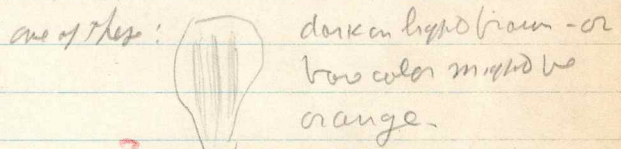 one of these:
dark on light brown - or
base color might be
orange.